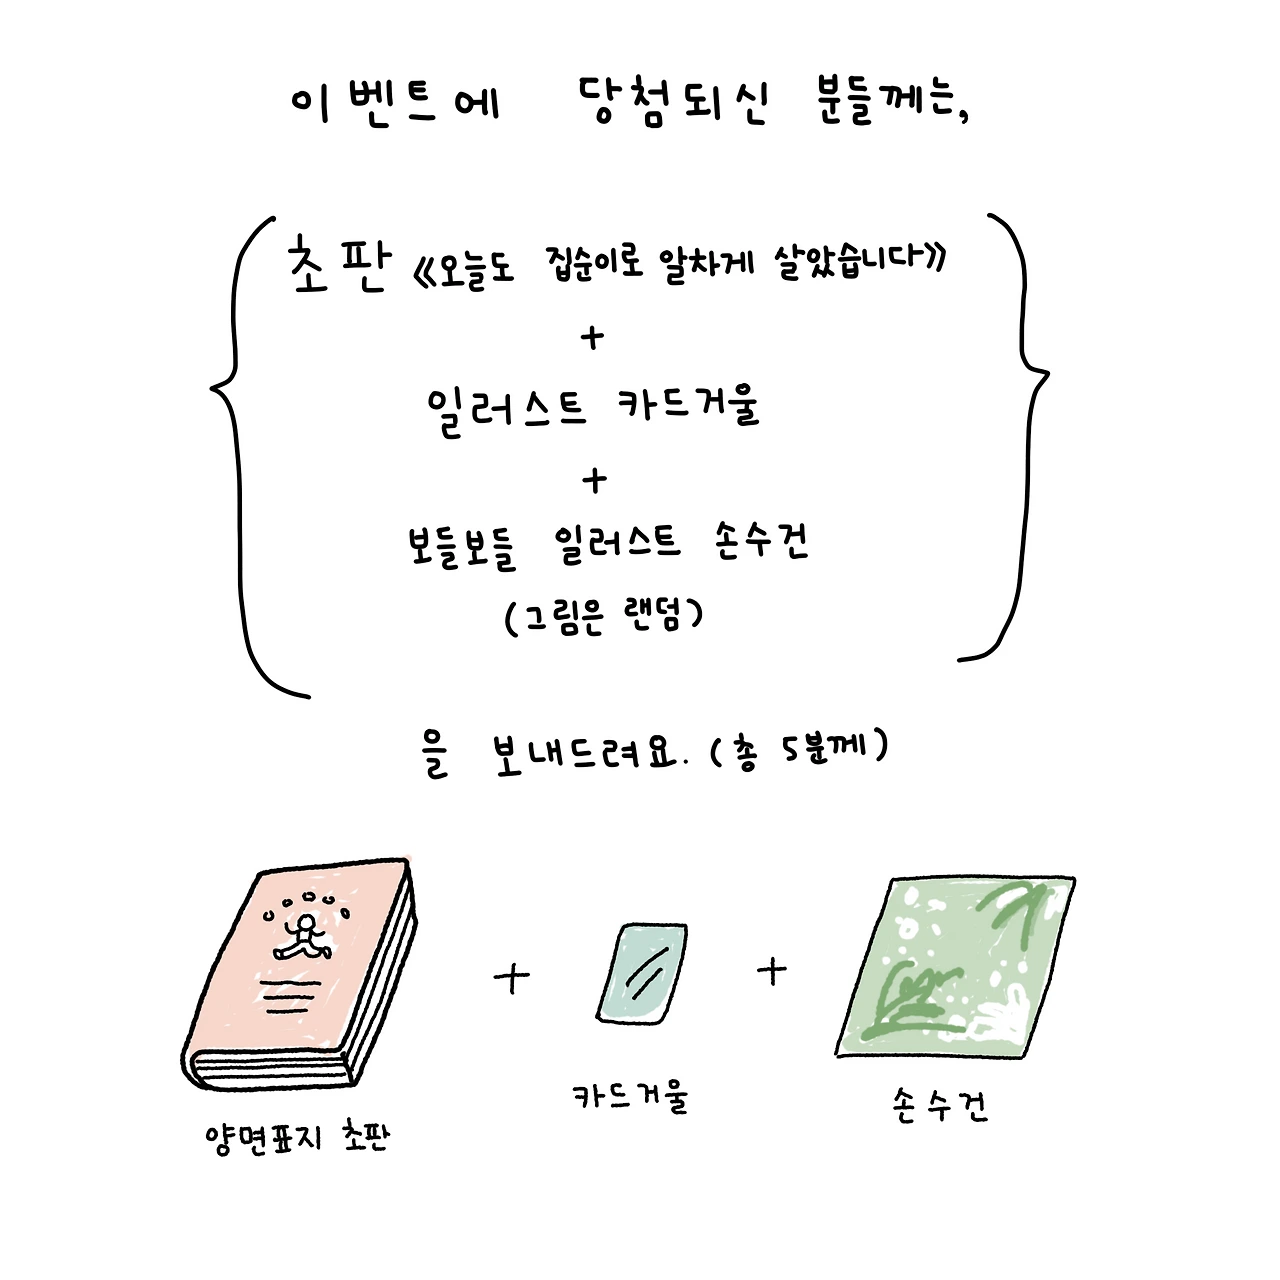 이벤트에 당첨되신 분들께는,
초판 《오늘도 집순이로 알차게 살았습니다》
+
일러스트 카드거울
+
보들보들 일러스트 손수건
(그림은 랜덤)
을 보내드려요. (총 5분께)
+ +
양면표지 초판
카드거울
손수건